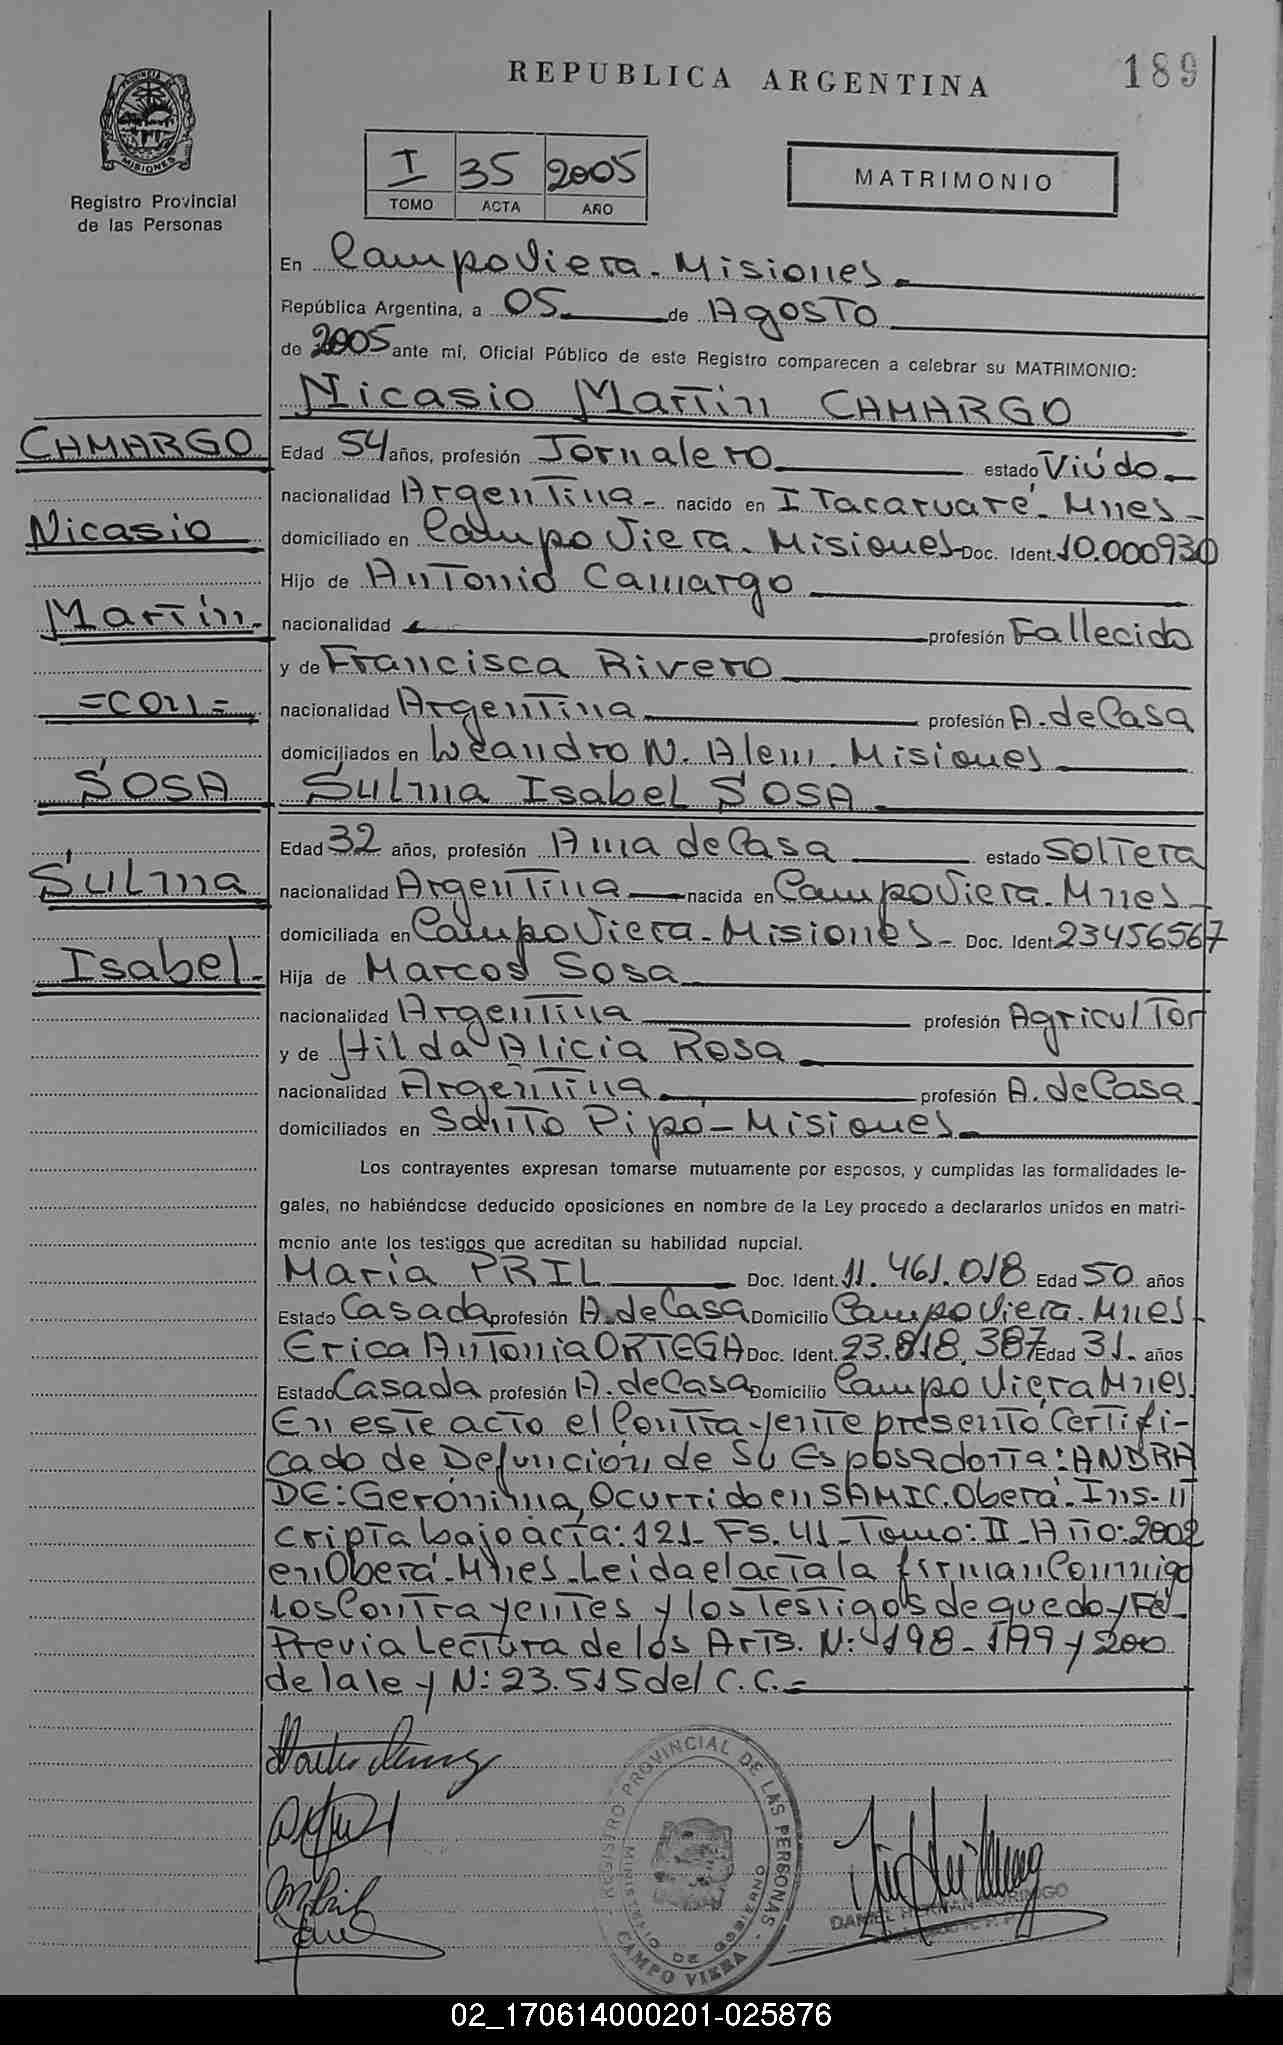 REPUBLICA ARGENTINA
189
PROVINCIA DE MISIONES
Registro Provincial
de las Personas
I 35 2005
TOMO ACTA AÑO
MATRIMONIO
En Campo Viera - Misiones
República Argentina, a 05 de Agosto
de 2005 ante mí, Oficial Público de este Registro comparecen a celebrar su MATRIMONIO:
Nicasio Martin CAMARGO
CAMARGO
Nicasio
Martin
=con=
SOSA
Sulma
Isabel
Edad 54 años, profesión Jornalero estado Viúdo
nacionalidad Argentina - nacido en Itacaruaré - Mnes -
domiciliado en Campo Viera - Misiones Doc. Ident. 10.000930
Hijo de Antonio Camargo
nacionalidad profesión Fallecido
y de Francisca Rivero
nacionalidad Argentina profesión A. de Casa
domiciliados en Leandro N. Alem - Misiones
Sulma Isabel SOSA
Edad 32 años, profesión Ama de Casa estado Soltera
nacionalidad Argentina nacida en Campo Viera - Mnes -
domiciliada en Campo Viera - Misiones - Doc. Ident. 23456567
Hija de Marcos Sosa
nacionalidad Argentina profesión Agricultor
y de Hilda Alicia Rosa
nacionalidad Argentina profesión A. de Casa
domiciliados en Santo Pipó - Misiones
Los contrayentes expresan tomarse mutuamente por esposos, y cumplidas las formalidades le-
gales, no habiéndose deducido oposiciones en nombre de la Ley procedo a declararlos unidos en matri-
monio ante los testigos que acreditan su habilidad nupcial.
Maria PRIL Doc. Ident. 11.461.018 Edad 50 años
Estado Casada profesión A. de Casa Domicilio Campo Viera - Mnes -
Erica Antonia ORTEGA Doc. Ident. 23.818.387 Edad 31 - años
Estado Casada profesión A. de Casa Domicilio Campo Viera Mnes.
En este acto el Contrayente presentó Certifi-
cado de Defunción de Su Esposa donta: ANDRA
DE: Gerónima, Ocurrido en SAMIC. Oberá - Ins-
cripta bajo acta: 121 - Fs. 41 - Tomo: II - Año: 2002
en Oberá - Mnes - Leida el acta la firman Conmigo
Los Contrayentes y los Testigos de que doy Fé -
Previa Lectura de los Arts. N: 198 - 199 y 200
de la ley N: 23.515 del C.C. =
REGISTRO PROVINCIAL DE LAS PERSONAS -
MINISTERIO DE GOBIERNO
CAMPO VIERA
DANIEL HERNAN MORINIGO
02_170614000201-025876